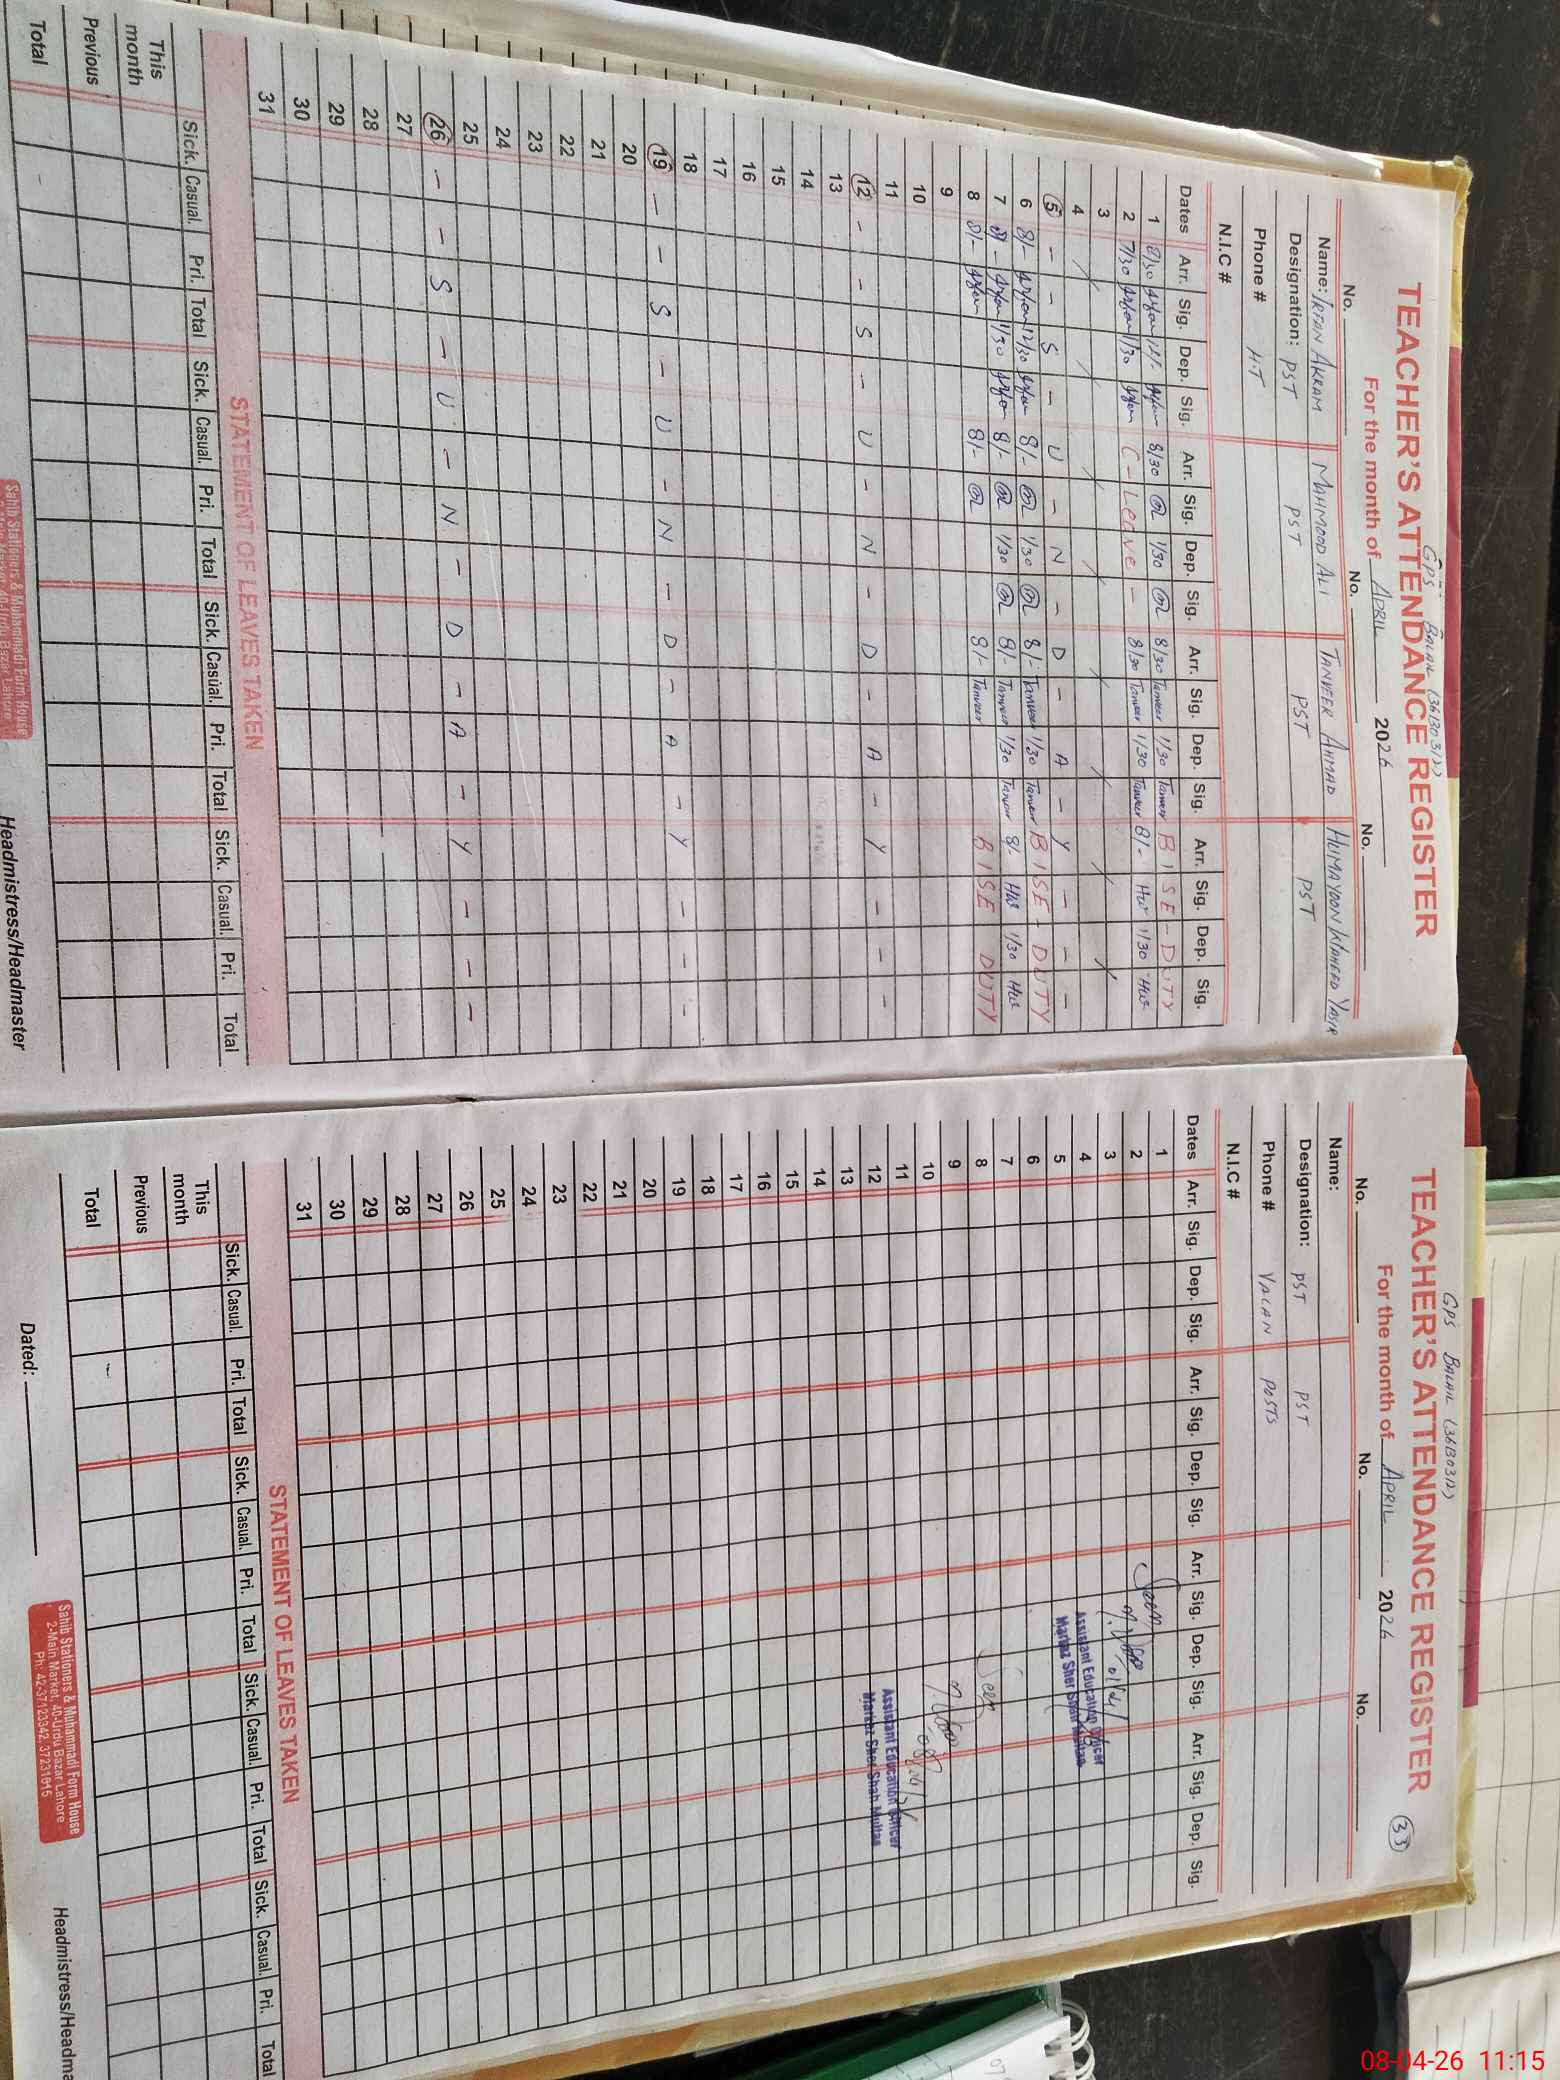 GPS BALAIL (36130312)
TEACHER'S ATTENDANCE REGISTER
For the month of APRIL 2026
No. No. No.
Name: IRFAN AKRAM MAHMOOD ALI TANVEER AHMAD HUMAYOON WAHEED YASIR
Designation: PST PST PST PST
Phone # H.T
N.I.C #
Dates Arr. Sig. Dep. Sig. Arr. Sig. Dep. Sig. Arr. Sig. Dep. Sig. Arr. Sig. Dep. Sig.
1 8/30 Irfan 12/- Irfan 8/30 1/30 8/30 Tanveer 1/30 Tanveer BISE-DUTY
2 7/30 Irfan 1/30 Irfan C-Leave - 8/30 Tanveer 1/30 Tanveer 8/- HW 1/30 HW
3
4
5 - - S - U - N - D - A - Y - - -
6 8/- Irfan 12/30 Irfan 8/- 1/30 8/- Tanveer 1/30 Tanveer BISE-DUTY
7 8/- Irfan 1/30 Irfan 8/- 1/30 8/- Tanveer 1/30 Tanveer 8/- HW 1/30 HW
8 8/- Irfan 8/- 8/- Tanveer BISE DUTY
9
10
11
12 - - S - U - N - D - A - Y - - -
13
14
15
16
17
18
19 - - S - U - N - D - A - Y - - -
20
21
22
23
24
25
26 - - S - U - N - D - A - Y - - -
27
28
29
30
31
STATEMENT OF LEAVES TAKEN
Sick. Casual. Pri. Total Sick. Casual. Pri. Total Sick. Casual. Pri. Total Sick. Casual. Pri. Total
This month
Previous
Total
Sahib Stationers & Muhammadi Form House
2-Main Market, 40-Urdu Bazar, Lahore
Headmistress/Headmaster
GPS BALAIL (36130312)
TEACHER'S ATTENDANCE REGISTER
33
For the month of APRIL 2026
No. No. No.
Name:
Designation: PST PST
Phone # VACAN POSTS
N.I.C #
Dates Arr. Sig. Dep. Sig. Arr. Sig. Dep. Sig. Arr. Sig. Dep. Sig. Arr. Sig. Dep. Sig.
1
2 Seen
3
4 Assistant Education Officer
5 Markaz Sher Shah Multan
6
7
8 Seen
9
10 08/04/26
11 Assistant Education Officer
12 Markaz Sher Shah Multan
13
14
15
16
17
18
19
20
21
22
23
24
25
26
27
28
29
30
31
STATEMENT OF LEAVES TAKEN
Sick. Casual. Pri. Total Sick. Casual. Pri. Total Sick. Casual. Pri. Total Sick. Casual. Pri. Total
This month
Previous
Total
Sahib Stationers & Muhammadi Form House
2-Main Market, 40-Urdu Bazar, Lahore
Ph: 42-37123342, 37231615
Dated:
Headmistress/Headma
07
08-04-26 11:15